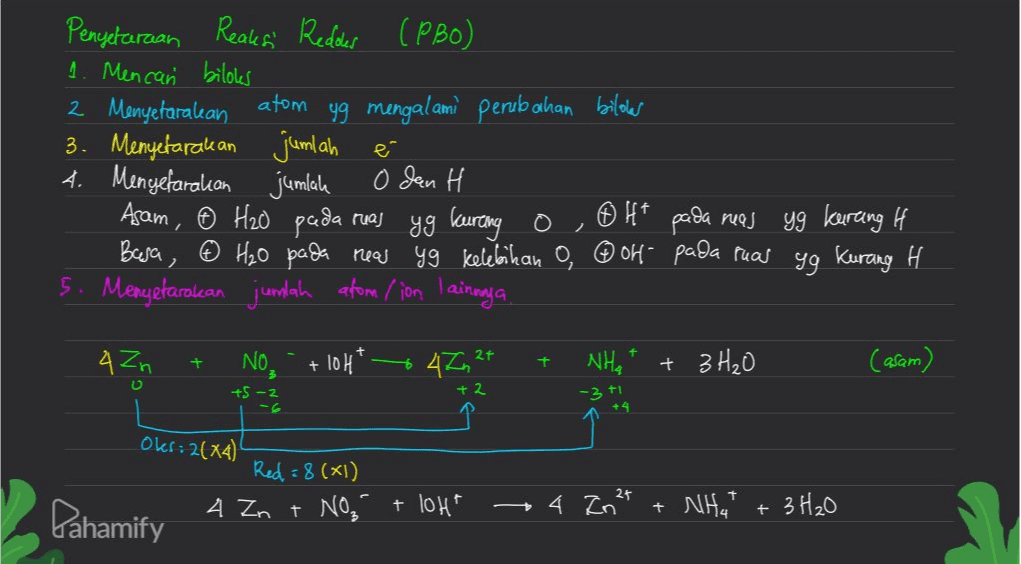 Penyetaraan Reaksi Redoks (PBO)
1. Mencari biloks
2 Menyetarakan atom yg mengalami perubahan biloks
3. Menyetarakan jumlah e⁻
4. Menyetarakan jumlah O dan H
Asam, ⊕ H₂O pada ruas yg kurang O, ⊕ H⁺ pada ruas yg kurang H
Basa, ⊕ H₂O pada ruas yg kelebihan O, ⊕ OH⁻ pada ruas yg kurang H
5. Menyetarakan jumlah atom/ion lainnya
4 Zn + NO₃⁻ + 10H⁺ → 4Zn²⁺ + NH₄⁺ + 3 H₂O (asam)
0 +5 -2 +2 -3 +1
-6 +4
Oks : 2(x4)
Red = 8 (x1)
4 Zn + NO₃⁻ + 10H⁺ → 4 Zn²⁺ + NH₄⁺ + 3 H₂O
Pahamify